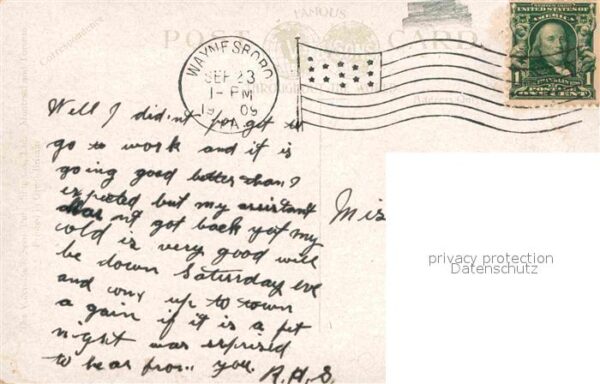 FAMOUS
POST CARD
Correspondence
THROUGHOUT THE WORLD
WAYNESBORO
SEP 23
1-PM
1909
PA.
UNITED STATES OF
AMERICA
1 1
POSTAGE
ONE CENT
Well I didnt forget to
go to work and it is
going good better than I
expected but my assistant
has nt got back yet my
cold is very good will
be down Saturday eve
and com up to town
a gain if it is a fit
night was suprised
to hear from you.
R.H.S.
Miss
privacy protection
Datenschutz